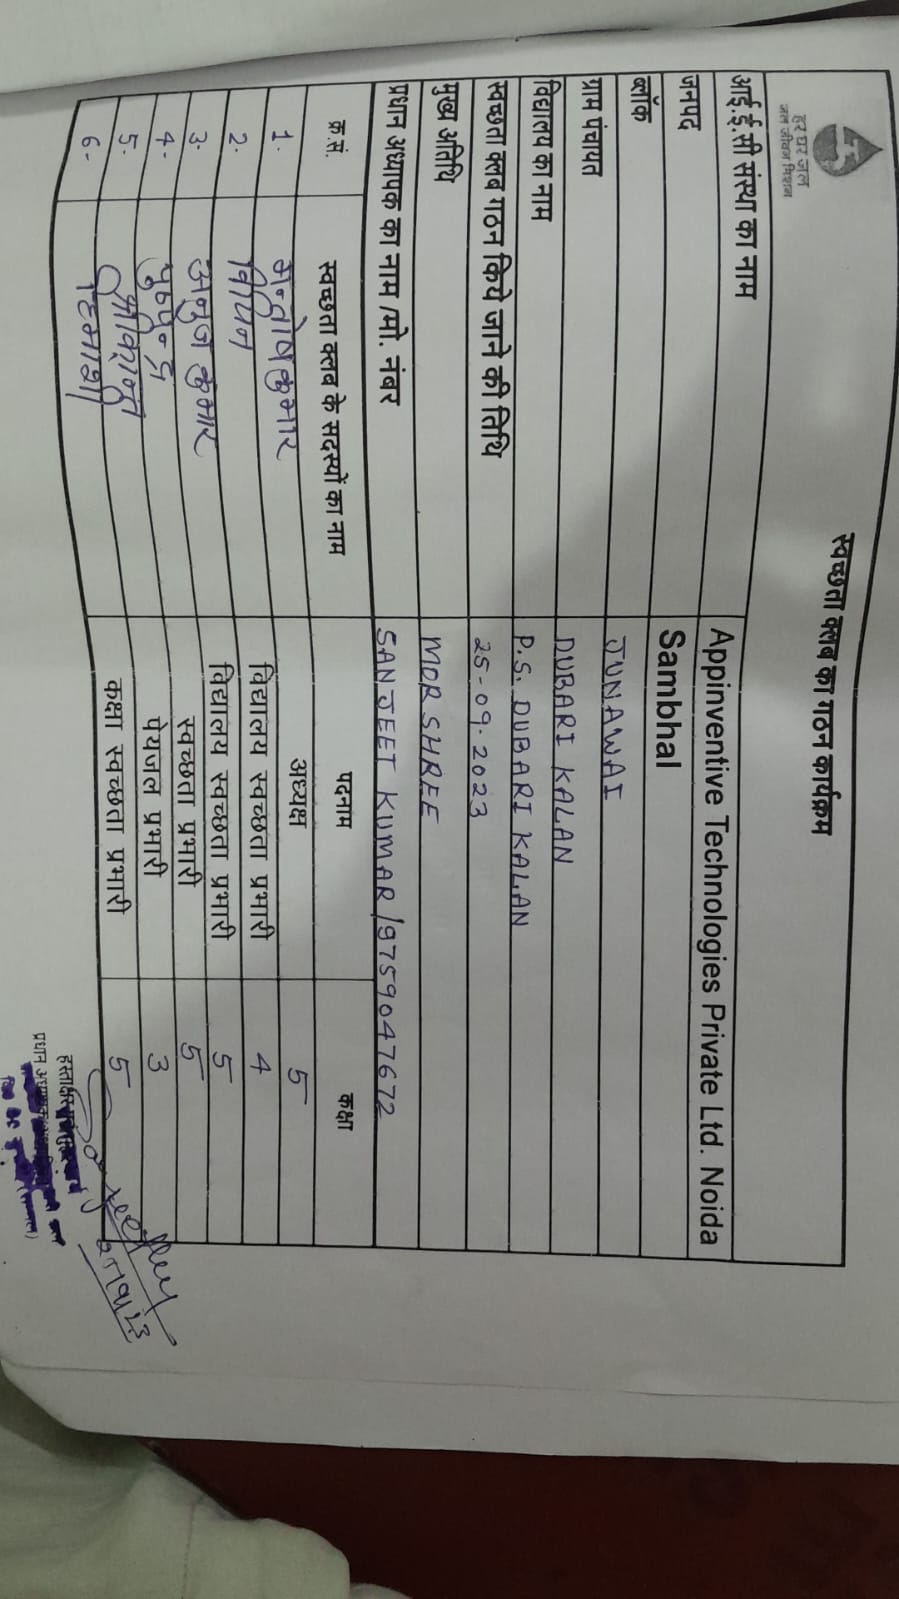 हर घर जल
जल जीवन मिशन
स्वच्छता क्लब का गठन कार्यक्रम
आई.ई.सी संस्था का नाम Appinventive Technologies Private Ltd. Noida
जनपद Sambhal
ब्लॉक JUNAWAI
ग्राम पंचायत DUBARI KALAN
विद्यालय का नाम P.S. DUBARI KALAN
स्वच्छता क्लब गठन किये जाने की तिथि 25-09-2023
मुख्य अतिथि MOR SHREE
प्रधान अध्यापक का नाम /मो. नंबर SANJEET KUMAR /9759047672
क्र.सं. स्वच्छता क्लब के सदस्यों का नाम पदनाम कक्षा
1. सन्तोष कुमार अध्यक्ष 5
2. विद्यालय स्वच्छता प्रभारी 4
3. अनुज कुमार विद्यालय स्वच्छता प्रभारी 5
4. पुष्पेन्द्र स्वच्छता प्रभारी 5
5. पेयजल प्रभारी 3
6. कक्षा स्वच्छता प्रभारी 5